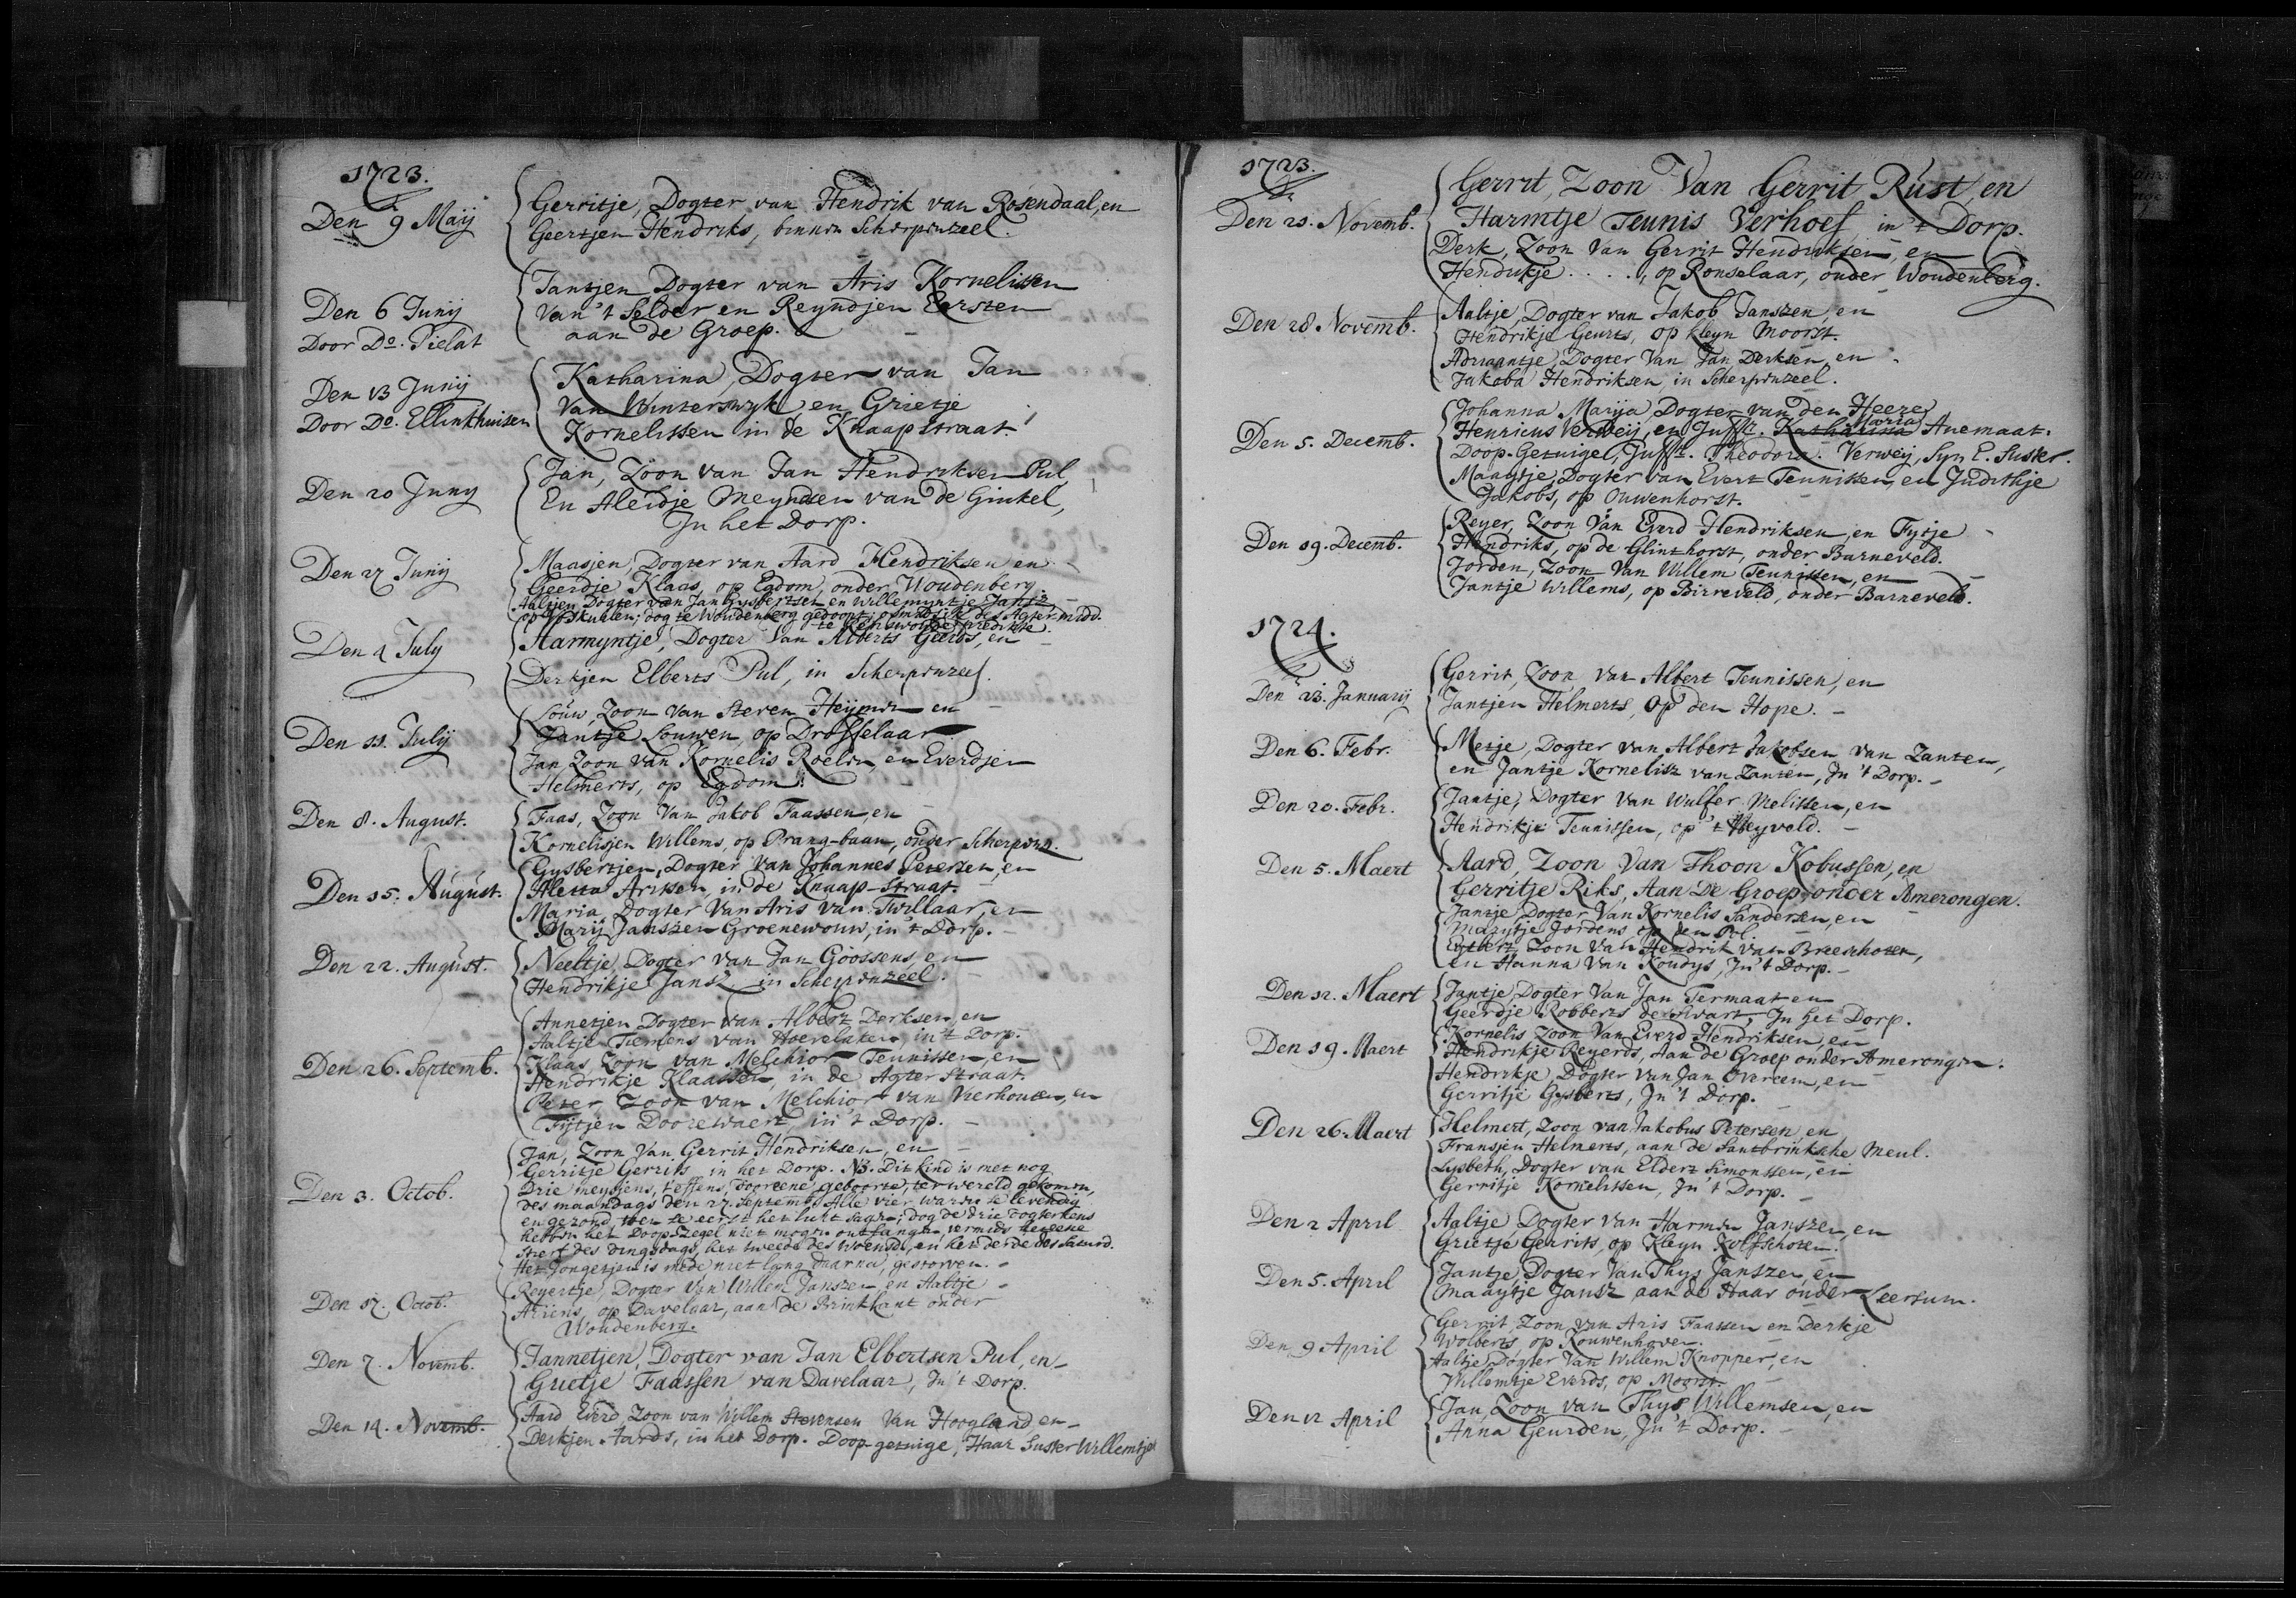 1723.
Den 9 Maij
Gerritje, Dogter van Hendrik van Rosendaal, en
Geertjen Hendriks, binnen Scherpenzeel.
Den 6 Junij
Door Do. Pielat
Jantjen Dogter van Aris Kornelissen
Van 't Selder en Reyndjen Eersten
aan de Groep.
Den 13 Junij
Door Do. Ellinkhuisen
Katharina, Dogter van Jan
Van Winterswyk, en Grietje
Kornelissen in de Knaapstraat.
Den 20 Juny
Jan, Zoon van Jan Hendriksen Pul,
En Aleidje Meyndsen van de Ginkel,
In het Dorp.
Den 27 Junij
Maasjen, Dogter van Aard Hendriksen en
Geerdje Klaas, op Egdom, onder Woudenberg
Aaltjen Dogter van Jan Gysbertsen en Willemyntje Jansz
dog te Woudenberg gedoopt, des Agtermidd.
te predikte.
Den 4 July
Harmyntje, Dogter van Alberts Geerds, en
Derkjen Elberts Pul, in Scherpenzeel.
Den 11. Julij
Louw, Zoon van Steven Heijmen en
Jantje Louwen, op Drosselaar
Jan Zoon van Kornelis Roelen, en Everdjen
Helmerts, op Egdom.
Den 8. August.
Faas, Zoon Van Jakob Faassen, en
Kornelisjen Willems, op Prang-baan, onder Scherpenz.
Den 15. August.
Gysbertjen, Dogter Van Johannes Petersen, en
Aletta Arissen, in de Knaap-Straat.
Maria, Dogter Van Aris van Twillaar, en
Marij Janszen Groenewouw, in 't Dorp.
Den 22. August.
Neeltje, Dogter van Jan Goossens, en
Hendrikje Jansz in Scherpenzeel.
Den 26. Septemb.
Annetjen Dogter van Albert Derksen, en
Aaltje Tiemens van Hoevelaken, in 't Dorp.
Klaas, Zoon van Melchior Teunissen, en
Hendrikje Klaassen, in de Agterstraat.
Peter, Zoon van Melchior van Vierhouten, en
Fijtjen Doorewaert, in 't Dorp.
Den 3. Octob.
Jan, Zoon Van Gerrit Hendriksen, en
Gerritje Gerrits, in het Dorp. NB. Dit kind is met nog
Drie meysjens, t'effens, door eene geboorte, ter wereld gekomen,
des maandags den 27. Septemb. Alle vier waren se levendig
en gezond, toen ze eerst het licht sagen; dog de drie Dogterkens
hebben het Doop-Zegel niet mogen ontfangen, vermids het eene
Stierf des Dingsdags, het tweede des Woensd., en het derde des Saturd.
Het Jongetjen is mede niet lang daarna, gestorven.
Den 17. Octob.
Reyertje, Dogter Van Willem Janszen en Aaltje
Ariens, op Davelaar, aan de Brinkkant onder
Woudenberg.
Den 7. Novemb.
Jannetjen, Dogter van Jan Elbertsen Pul, en
Grietje Faassen van Davelaar, In 't Dorp.
Den 14. Novemb.
Aard Everd, Zoon van Willem Stevensen Van Hoogland en
Derkjen Aards, in het Dorp. Doopgetuige, Haar Suster Willemtje
1723.
Den 21. Novemb.
Gerrit, Zoon Van Gerrit Rust, en
Harmtje Teunis Verhoef, in 't Dorp.
Derk, Zoon Van Gerrit Hendriksen, en
Hendrikje . . . ., op Ronselaar, onder Woudenberg.
Den 28 Novemb.
Aaltje, Dogter van Jakob Janszen, en
Hendrikje Geurts, op Kleyn Moorst.
Adriaantje, Dogter Van Jan Derksen, en
Jakoba Hendriksen, in Scherpenzeel.
Den 5. Decemb.
Johanna Marija, Dogter van den Heere
Henricus Verweij, en Juffr. Katharina Maria Anemaat.
Doop-Getuige, Juffr. Theodora Verweij, Syn E. Suster.
Maaytje, Dogter van Evert Teunissen, en Judithje
Jakobs, op Ouwenhorst.
Den 19. Decemb.
Reyer, Zoon Van Everd Hendriksen, en Fytje
Hendriks, op de Glinthorst, onder Barneveld.
Jorden, Zoon Van Willem Teunissen, en
Jantje Willems, op Birreveld, onder Barneveld.
1724.
Den 23. Januarij
Gerrit, Zoon van Albert Teunissen, en
Jantjen Helmerts, op den Hope.
Den 6. Febr.
Metje, Dogter van Albert Jakobsen van Zanten,
en Jantje Kornelisz van Zanten, In 't Dorp.
Den 20. Febr.
Jantje, Dogter Van Wulfer Melissen, en
Hendrikje Teunissen, op 't Heyveld.
Den 5. Maert
Aard, Zoon Van Thoon Kobussen, en
Gerritje Riks, Aan De Groep onder Amerongen.
Jantje Dogter Van Kornelis Sandersen, en
Maaytje Jordens op den Pol.
Zoon Van Hendrik van Breeschoten,
en Hanna Van Koudys, In 't Dorp.
Den 12. Maert
Jantje, Dogter Van Jan Termaat en
Geerdje Robberts de Swart, In het Dorp.
Den 19. Maert
Kornelis Zoon Van Everd Hendriksen, en
Hendrikje Reyerds, Aan de Groep onder Amerongen.
Hendrikje, Dogter van Jan Overeem, en
Gerritje Gysberts, In 't Dorp.
Den 26. Maert
Helmert, Zoon van Jakobus Petersen en
Fransjen Helmerts, aan de Santbrinksche Meul.
Lysbeth, Dogter van Eldert Simonssen, en
Gerritje Kornelissen, In 't Dorp.
Den 2 April
Aaltje, Dogter van Harmen Janszen, en
Grietje Gerrits, op Kleyn Kolfschoten.
Den 5. April
Jantje, Dogter Van Thys Janszen, en
Maaytje Jansz aan de Haar onder Leersum.
Den 9 April
Gerrit, Zoon van Aris Faassen en Derkje
Wolberts op Kouwenhoven.
Aaltje Dogter Van Willem Knopper, en
Willemtje Everds, op Moorst.
Den 12 April
Jan, Zoon van Thys Willemsen, en
Anna Geurden, In 't Dorp.